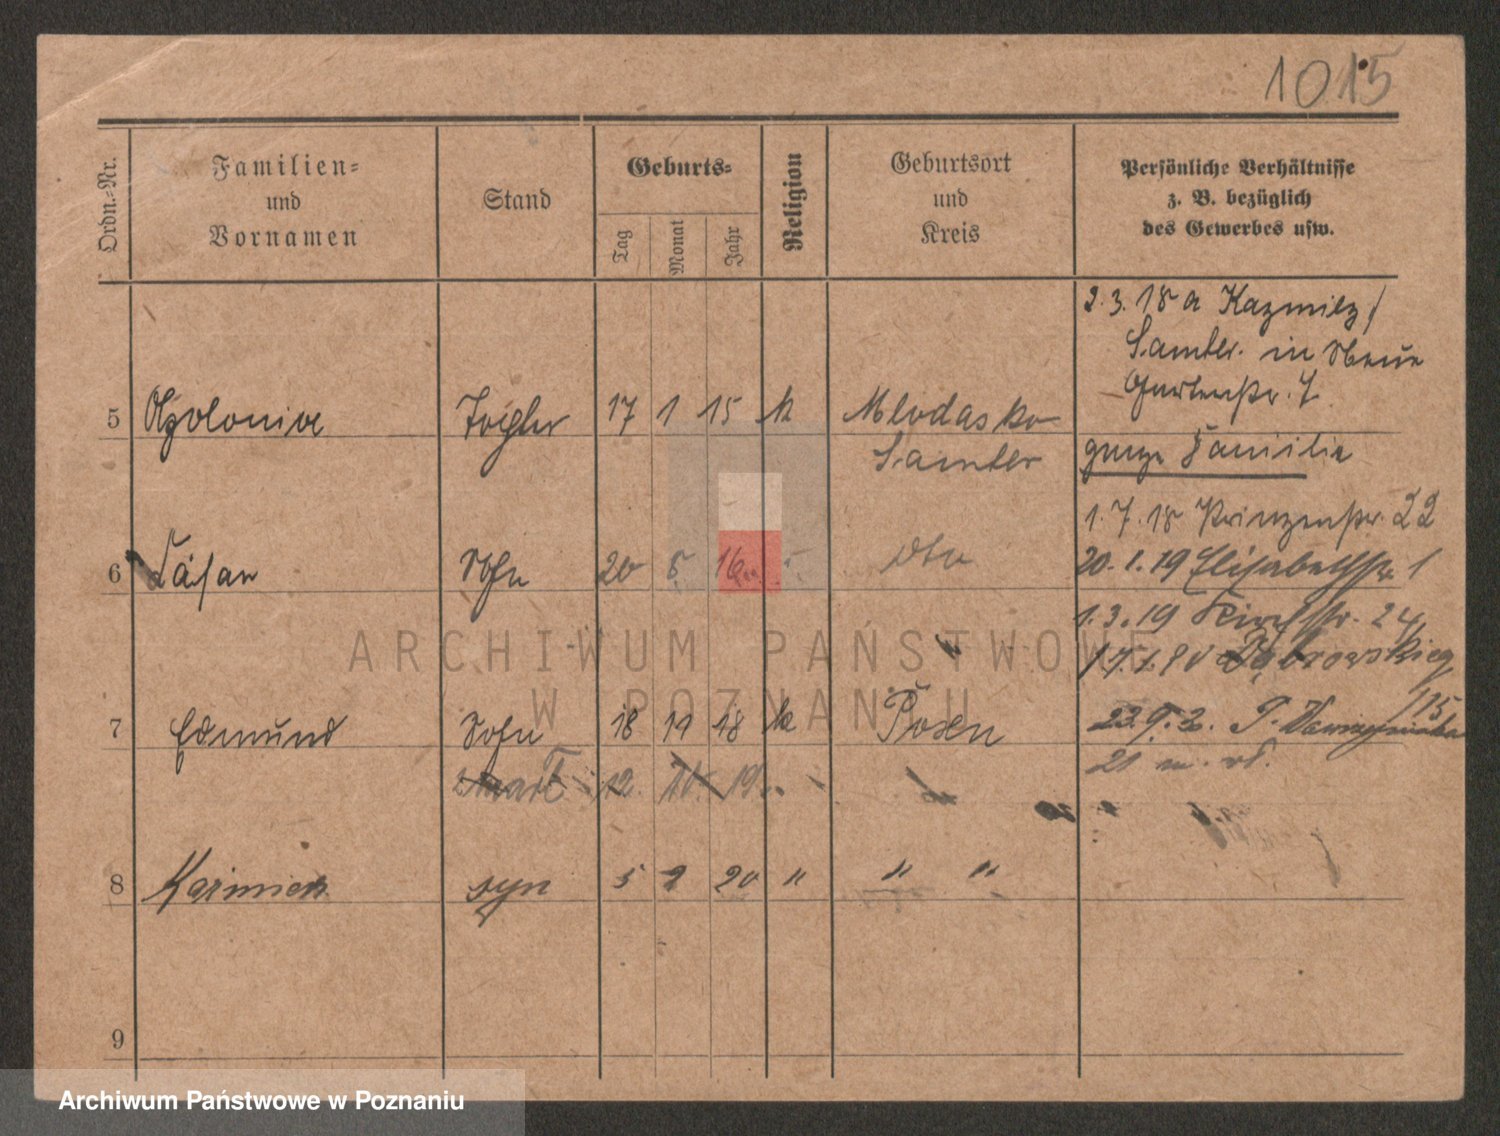 1015
Ordn.-Nr.
Familien-
und
Vornamen
Stand
Geburts-
Tag
Monat
Jahr
Religion
Geburtsort
und
Kreis
Persönliche Verhältnisse
z. B. bezüglich
des Gewerbes usw.
2.3.18 a Kazmierz/
Samter. in Neue
Gartenstr. 7
5 Apolonia Tochter 17 1 15 k Mlodasko
Samter
ganze Familie
1.7.18 Prinzenstr. 22
6 Cäsar Sohn 20 5 16 dto
20.1.19 Elisabethstr 1
1.3.19 Kirchstr. 24
Dąbrowskieg
115
7 Edmund Sohn 18 11 18 k Posen
23.9.2.
21 m.
zmarł 12. 10. 19
8 Kazimierz syn 5 2 20 " " "
9
ARCHIWUM PAŃSTWOWE
W POZNANIU
Archiwum Państwowe w Poznaniu